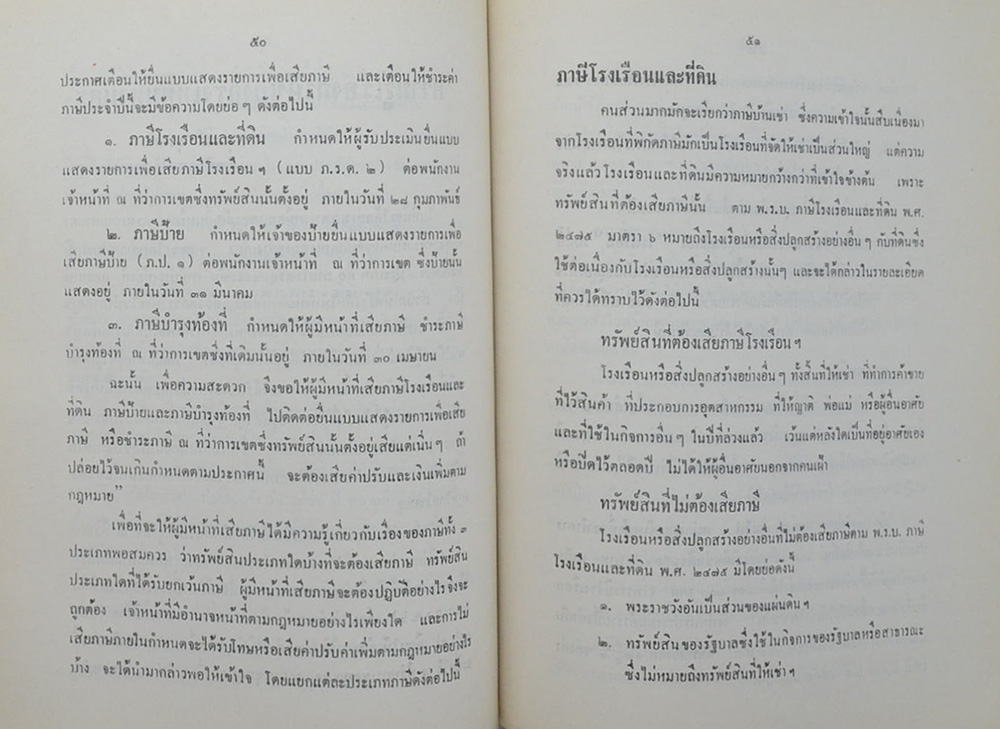 ๕๐
ประกาศเตือนให้ยื่นแบบแสดงรายการเพื่อเสียภาษี และเตือนให้ชำระค่า
ภาษีประจำปีนี้จะมีข้อความโดยย่อ ๆ ดังต่อไปนี้
๑. ภาษีโรงเรือนและที่ดิน กำหนดให้ผู้รับประเมินยื่นแบบ
แสดงรายการเพื่อเสียภาษีโรงเรือน ฯ (แบบ ภ.ร.ด. ๒) ต่อพนักงาน
เจ้าหน้าที่ ณ ที่ว่าการเขตซึ่งทรัพย์สินนั้นตั้งอยู่ ภายในวันที่ ๒๘ กุมภาพันธ์
๒. ภาษีป้าย กำหนดให้เจ้าของป้ายยื่นแบบแสดงรายการเพื่อ
เสียภาษีป้าย (ภ.ป. ๑) ต่อพนักงานเจ้าหน้าที่ ณ ที่ว่าการเขต ซึ่งป้ายนั้น
แสดงอยู่ ภายในวันที่ ๓๑ มีนาคม
๓. ภาษีบำรุงท้องที่ กำหนดให้ผู้มีหน้าที่เสียภาษี ชำระภาษี
บำรุงท้องที่ ณ ที่ว่าการเขตซึ่งที่เดิมนั้นอยู่ ภายในวันที่ ๓๐ เมษายน
ฉะนั้น เพื่อความสะดวก จึงขอให้ผู้มีหน้าที่เสียภาษีโรงเรือนและ
ที่ดิน ภาษีป้ายและภาษีบำรุงท้องที่ ไปติดต่อยื่นแบบแสดงรายการเพื่อเสีย
ภาษี หรือชำระภาษี ณ ที่ว่าการเขตซึ่งทรัพย์สินนั้นตั้งอยู่เสียแต่เนิ่น ๆ ถ้า
ปล่อยไว้จนเกินกำหนดตามประกาศนี้ จะต้องเสียค่าปรับและเงินเพิ่มตาม
กฎหมาย”
เพื่อที่จะให้ผู้มีหน้าที่เสียภาษีได้มีความรู้เกี่ยวกับเรื่องของภาษีทั้ง ๓
ประเภทพอสมควร ว่าทรัพย์สินประเภทใดบ้างที่จะต้องเสียภาษี ทรัพย์สิน
ประเภทใดที่ได้รับยกเว้นภาษี ผู้มีหน้าที่เสียภาษีจะต้องปฏิบัติอย่างไรจึงจะ
ถูกต้อง เจ้าหน้าที่มีอำนาจหน้าที่ตามกฎหมายอย่างไรเพียงใด และการไม่
เสียภาษีภายในกำหนดจะได้รับโทษหรือเสียค่าปรับค่าเพิ่มตามกฎหมายอย่างไร
บ้าง จะได้นำมากล่าวพอให้เข้าใจ โดยแยกแต่ละประเภทภาษีดังต่อไปนี้
๕๑
ภาษีโรงเรือนและที่ดิน
คนส่วนมากมักจะเรียกว่าภาษีบ้านเช่า ซึ่งความเข้าใจนั้นสืบเนื่องมา
จากโรงเรือนที่พิกัดภาษีมักเป็นโรงเรือนที่จัดให้เช่าเป็นส่วนใหญ่ แต่ความ
จริงแล้วโรงเรือนและที่ดินมีความหมายกว้างกว่าที่เข้าใจข้างต้น เพราะ
ทรัพย์สินที่ต้องเสียภาษีนั้น ตาม พ.ร.บ. ภาษีโรงเรือนและที่ดิน พ.ศ.
๒๔๗๕ มาตรา ๖ หมายถึงโรงเรือนหรือสิ่งปลูกสร้างอย่างอื่น ๆ กับที่ดินซึ่ง
ใช้ต่อเนื่องกับโรงเรือนหรือสิ่งปลูกสร้างนั้นๆ และจะได้กล่าวในรายละเอียด
ที่ควรได้ทราบไว้ดังต่อไปนี้
ทรัพย์สินที่ต้องเสียภาษีโรงเรือน ฯ
โรงเรือนหรือสิ่งปลูกสร้างอย่างอื่น ๆ ทั้งสิ้นที่ให้เช่า ที่ทำการค้าขาย
ที่ไว้สินค้า ที่ประกอบการอุตสาหกรรม ที่ให้ญาติ พ่อแม่ หรือผู้อื่นอาศัย
และที่ใช้ในกิจการอื่น ๆ ในปีที่ล่วงแล้ว เว้นแต่หลังใดเป็นที่อยู่อาศัยเอง
หรือปิดไว้ตลอดปี ไม่ได้ให้ผู้อื่นอาศัยนอกจากคนเฝ้า
ทรัพย์สินที่ไม่ต้องเสียภาษี
โรงเรือนหรือสิ่งปลูกสร้างอย่างอื่นที่ไม่ต้องเสียภาษีตาม พ.ร.บ. ภาษี
โรงเรือนและที่ดิน พ.ศ. ๒๔๗๕ มีโดยย่อดังนี้
๑. พระราชวังอันเป็นส่วนของแผ่นดิน ฯ
๒. ทรัพย์สินของรัฐบาลซึ่งใช้ในกิจการของรัฐบาลหรือสาธารณะ
ซึ่งไม่หมายถึงทรัพย์สินที่ให้เช่า ฯ